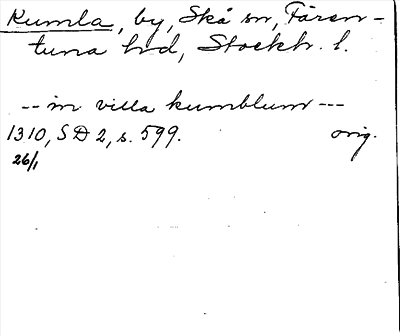 Kumla, by, Skå sn, Fären-
tuna hd, Stockh. l.
-- in villa kumblum ---
1310, SD 2, s. 599. orig.
26/1